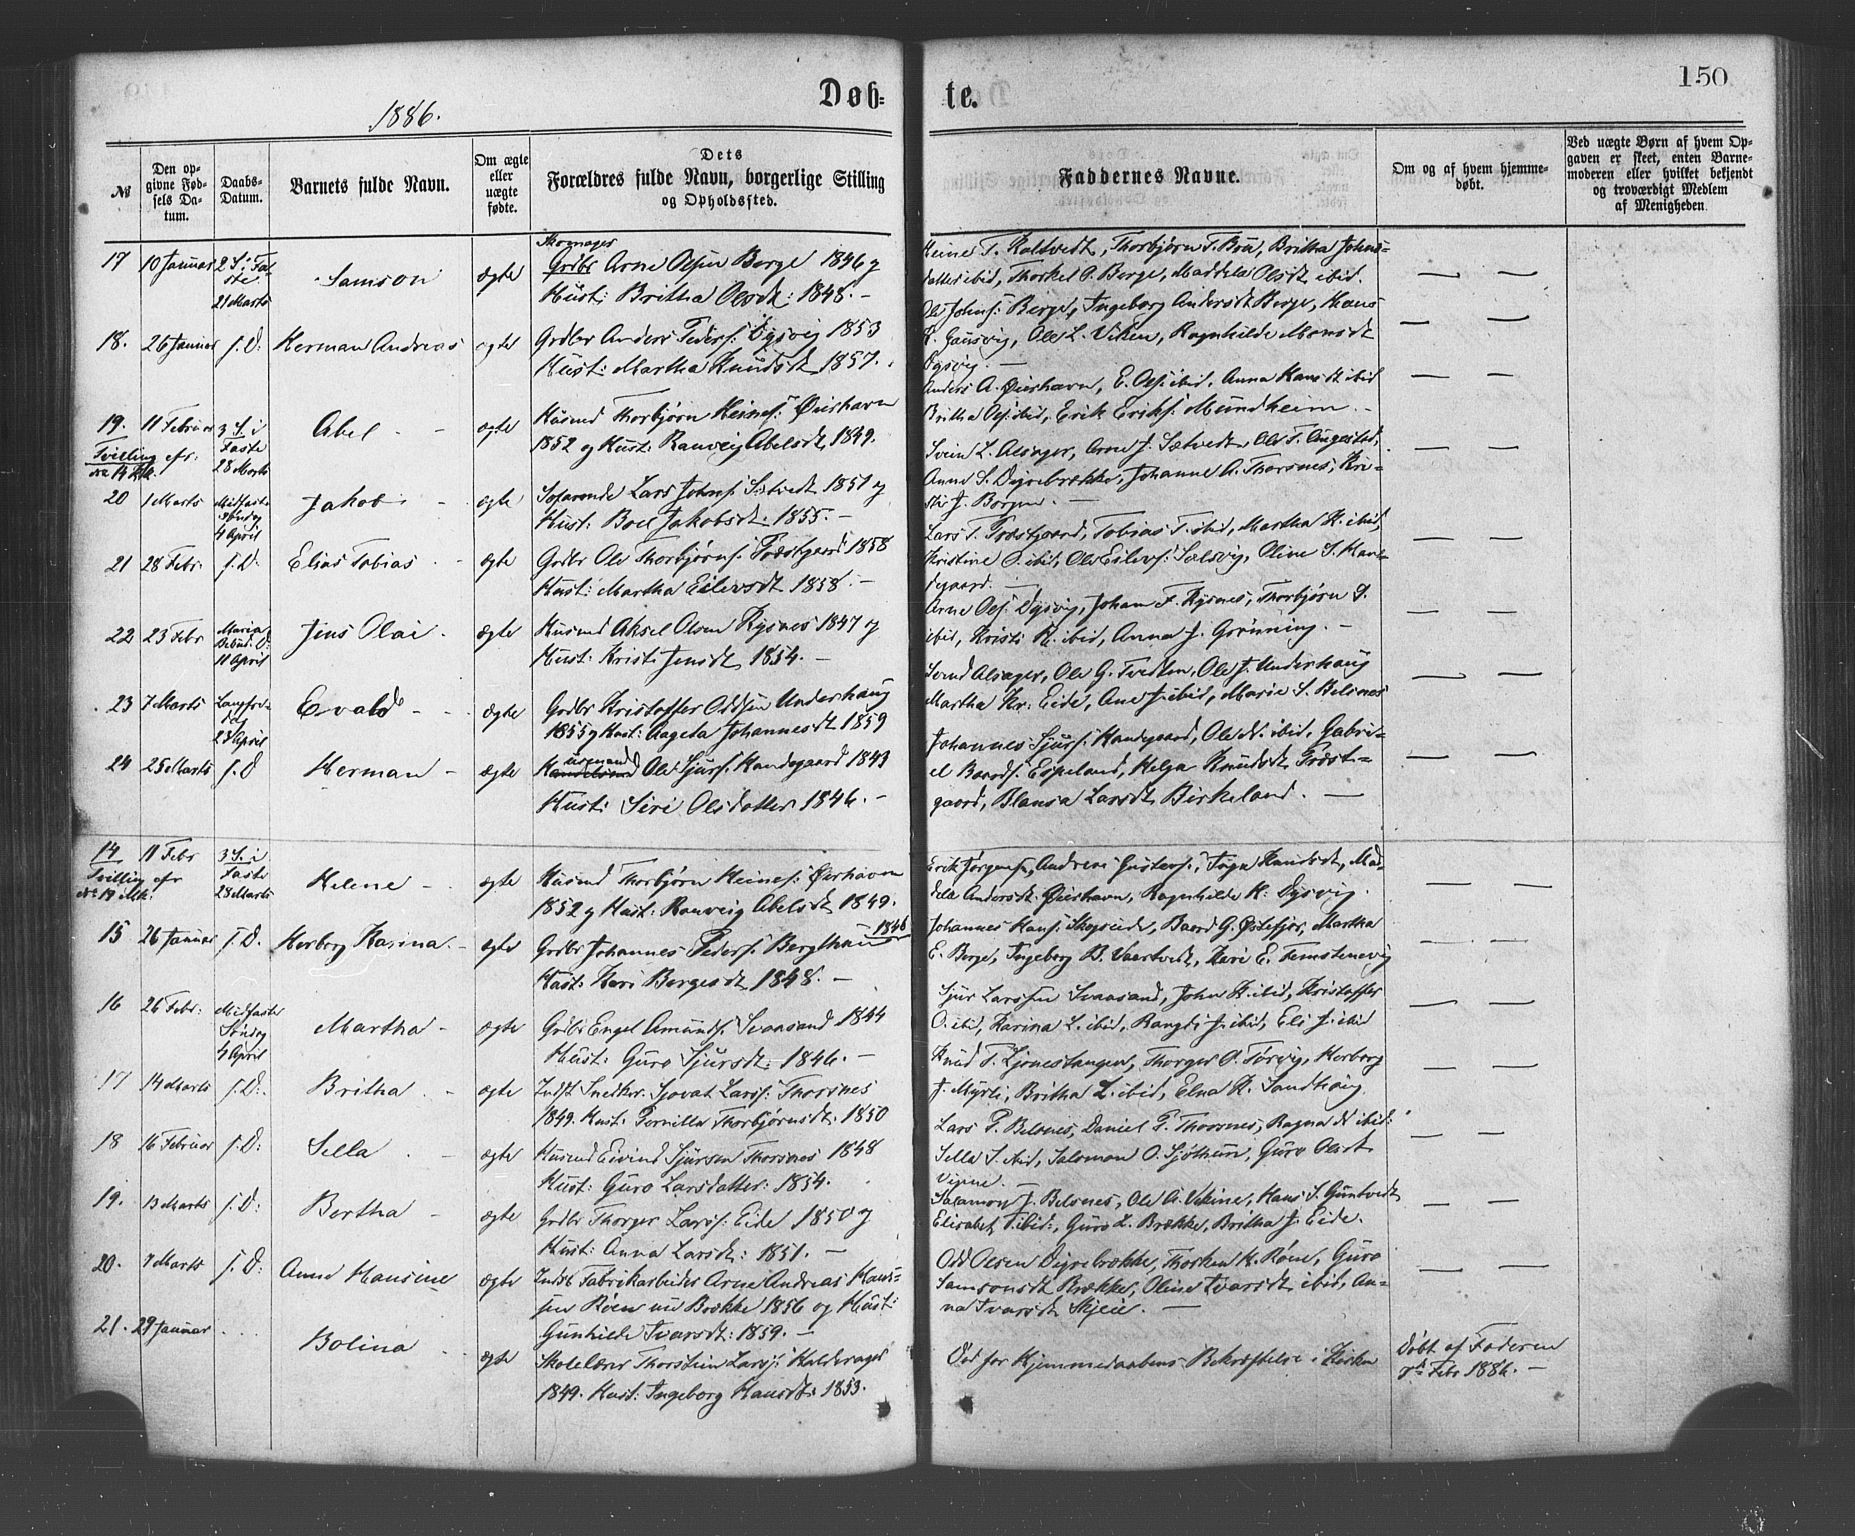 1886.
Døb=
te.
150
№
Den op-
givne Fød-
sels Da-
tum.
Daabs-
Datum.
Barnets fulde Navn.
Om ægte
eller
uægte
fødte.
Dets
Forældres fulde Navn, borgerlige Stilling
og Opholdssted.
Faddernes Navne.
Om og af hvem hjemme-
døbt.
Ved uægte Børn af hvem Op-
gaven er skeet, enten Barne-
moderen eller hvilket bekjendt
og troværdigt Medlem
af Menigheden.
17 10 Januar 2 S. i Fa-
ste
21 Marts
Samson
ægte
Grdbr Arne Olsen Berge 1846 og
Hust: Britha Olsdt: 1848. —
Heine T. Kaltvedt, Thorbjørn T. Bru, Britha Johns-
datter ibid, Thorkel O. Berge, Maddela Olsdt ibid.
18. 26 Januar s. D: Herman Andreas
ægte
Grdbr Anders Peders: Dysvig 1853
Hust: Martha Knudsdt 1857.
Ole Johns: Berge, Ingeborg Andersdt Berge, Hans
H. Gausvig, Ole L. Viken, Ragnhilde Monsdt
Dysvig. —
19. 11 Februar 3 S. i
Faste
28 Marts
Tvilling efr:
No 14 Kk.
Abel
ægte
Husmd Thorbjørn Heines: Øierhavn
1852 og Hust: Ranveig Abelsdt 1849.
Anders A. Øierhavn, E. Ols: ibid, Anna Hansdt ibid
Britha Ols: ibid, Erik Eriks: Mundheim. —
20 1 Marts Midfaste
Søndag
4 April
Jakob
ægte
Søfarende Lars Johns: Sætvedt 1851 og
Hust: Boel Jakobsdt: 1855. —
Svein L. Alsager, Arne J. Sætvedt, Ole T. Augestad,
Anne S. Dyrebrække, Johanne A. Thorsnes, Kri-
sti J. Borgen. —
21 28 Febr: s. D: Elias Tobias
ægte
Grdbr Ole Thorbjørns: Præstgaard 1858
Hust: Martha Eilevsdt 1858. —
Lars T. Præstgaard, Tobias T. ibid, Martha H. ibid,
Kristine O. ibid, Ole Eilevs: Salsvig, Oline S. Han-
degaard. —
22 23 Febr Maria
Bebud. D:
11 April
Jens Olai
ægte
Husmd Aksel Olsen Rysnes 1847 og
Hust: Kristi Jensdt 1854. —
Arne Ols: Dysvig, Johan F. Rysnes, Thorbjørn S.
ibid, Kristi H. ibid, Anna J. Grønning. —
23 7 Marts Langfre-
dag
23 April
Evald
ægte
Grdbr Kristoffer Oddsen Underhaug
1855 og Hust: Aageta Johannesdt 1859
Svend Alsager, Ole G. Tvedten, Ole J. Underhaug
Martha Kr: Eide, Ane J. ibid, Marie S. Belsnes
24 25 Marts s. D Herman
ægte
Ole Sjurs: Handegaard 1843
Hust: Siri Olsdatter 1846. —
Johannes Sjurs: Handegaard, Ole N. ibid, Gabri-
el Baards: Espeland, Helga Knudsdt Præst-
gaard, Blansa Larsdt Birkeland. —
14 11 Febr 3 S. i
Faste
28 Marts
Tvilling efr
No 19 Mk:
Helene
ægte
Husmd Thorbjørn Heines: Øierhavn
1852 og Hust: Ranveig Abelsdt 1849.
Erik Jørgens:, Andreas Gustavs:, Inga Hansdt, Mad-
dela Andersdt Øierhavn, Ragnhilde H: Dysvig.
15 26 Januar s. D. Herborg Karina
ægte
Grdbr Johannes Peders: Bergthun 1846
Hust: Kari Bergesdt 1848. —
Johannes Hans: Skogseide, Baard G. Østefjor, Martha
E. Berge, Ingeborg B. Vaartvedt, Kari E. Femstenevig
16 26 Febr: Midfaste
Søndag
4 April
Martha
ægte
Grdbr Engel Amunds: Svaasand 1844
Hust: Guro Sjursdt: 1846. —
Sjur Larssen Svaasand, John H. ibid, Kristoffer
O. ibid, Karina L. ibid, Rangdi J. ibid, Eli J. ibid
17 14 Marts s. D: Britha
ægte
Indst Snedker Sjovat Lars: Thorsnes
1849. Hust: Pernilla Thorbjørnsdt: 1850
Knud T. Ljonestangen, Thorger O. Tørvig, Herborg
J. Myrli, Britha L. ibid, Elna K. Sandhaug.
18 16 Februar s. D: Sella
ægte
Husmd Eivind Sjursen Thorsnes 1848
Hust: Guro Larsdatter: 1854.
Lars P. Belsnes, Daniel P. Thorsnes, Ragna N ibid:
Sella S. ibid, Salomon O. Sjøthun, Guro Olsdt
Vigne.
19. 13 Marts s. D: Bertha
ægte
Grdbr Thorger Lars: Eide 1850 og
Hust: Anna Larsdt: 1851. —
Salamon J. Belsnes, Ole A. Vikine, Hans S. Guntvedt,
Elisabet T. ibid:, Guro L. Brække, Britha J. Eide.
20. 7 Marts s. D: Anna Hansine
ægte
Indst Fabrikarbeider Arne Andreas Hans-
sen Røen nu Brække 1856 og Hust:
Gunhilde Ivarsdt: 1859. —
Odd Olsen Dyrebrække, Thorken H. Røen, Guro
Samsonsdt Brække, Oline Ivarsdt ibid, An-
na Ivarsdt Skjeie. —
21. 29 Januar
Bolina
ægte
Skolelærer Thorstein Lars: Halderager
1849. Hust: Ingeborg Hansdt: 1853.
Ved for Hjemmedaabens Bekræftelse i Kirken
Døbt af Faderen
7de Febr 1886. —